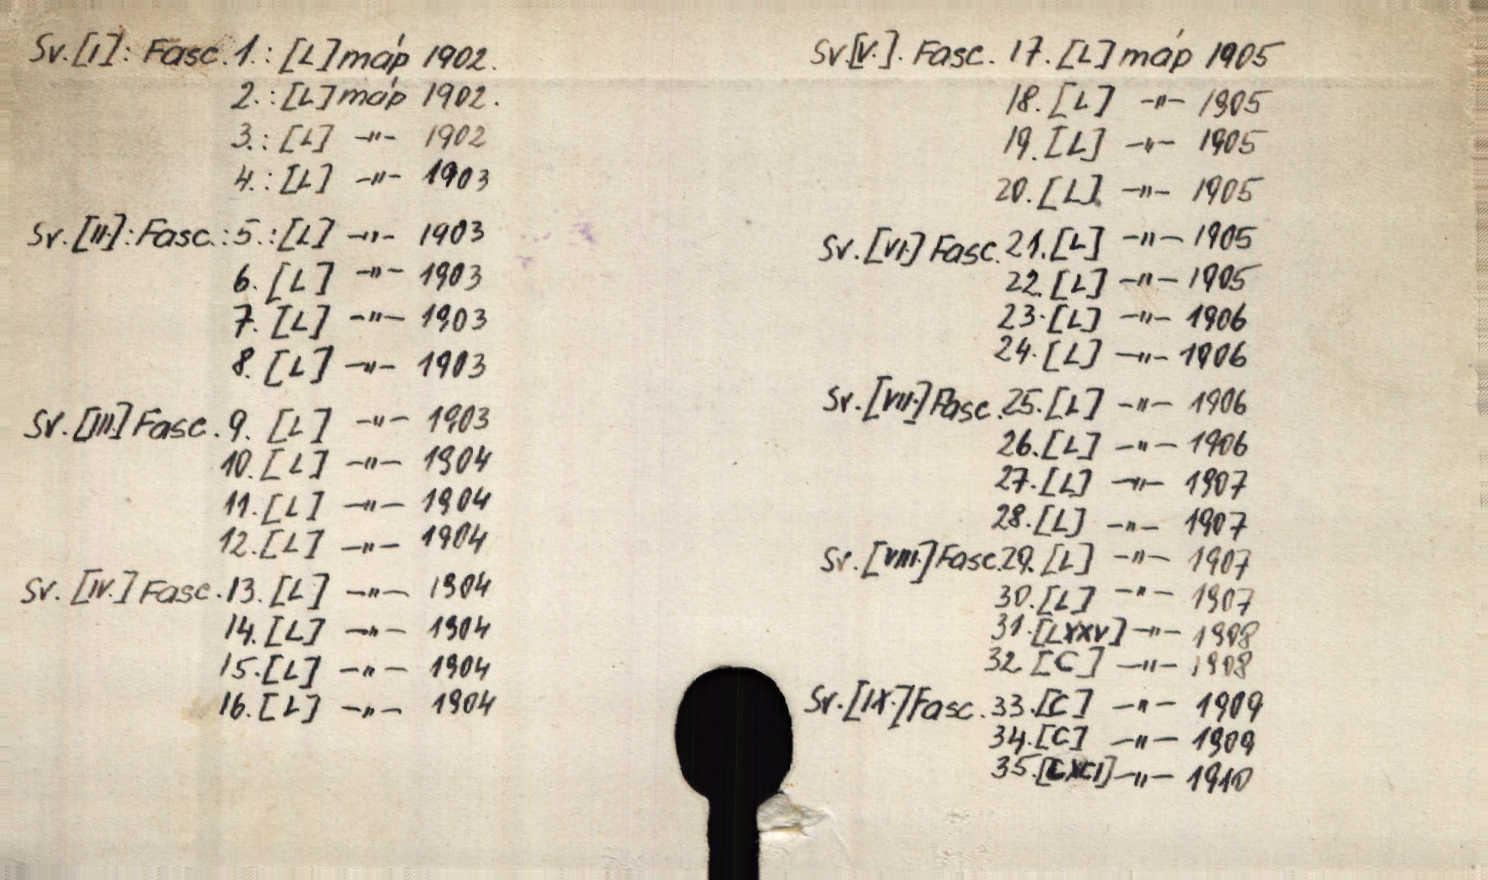 Sv.[I]: Fasc. 1.: [L] máp 1902.
2.: [L] máp 1902.
3.: [L] -"- 1902
4.: [L] -"- 1903
Sv.[II.]: Fasc.: 5.: [L] -"- 1903
6. [L] -"- 1903
7. [L] -"- 1903
8. [L] -"- 1903
Sv.[III.] Fasc. 9. [L] -"- 1903
10. [L] -"- 1904
11. [L] -"- 1904
12. [L] -"- 1904
Sv. [IV.] Fasc. 13. [L] -"- 1904
14. [L] -"- 1904
15. [L] -"- 1904
16. [L] -"- 1904
Sv.[V.]. Fasc. 17. [L] máp 1905
18. [L] -"- 1905
19. [L] -"- 1905
20. [L] -"- 1905
Sv. [VI.] Fasc. 21. [L] -"- 1905
22. [L] -"- 1905
23. [L] -"- 1906
24. [L] -"- 1906
Sv. [VII.] Fasc. 25. [L] -"- 1906
26. [L] -"- 1906
27. [L] -"- 1907
28. [L] -"- 1907
Sv. [VIII.] Fasc. 29. [L] -"- 1907
30. [L] -"- 1907
31. [LXXV] -"- 1908
32. [C] -"- 1908
Sv. [IX.] Fasc. 33. [C] -"- 1909
34. [C] -"- 1909
35. [CXCI] -"- 1910